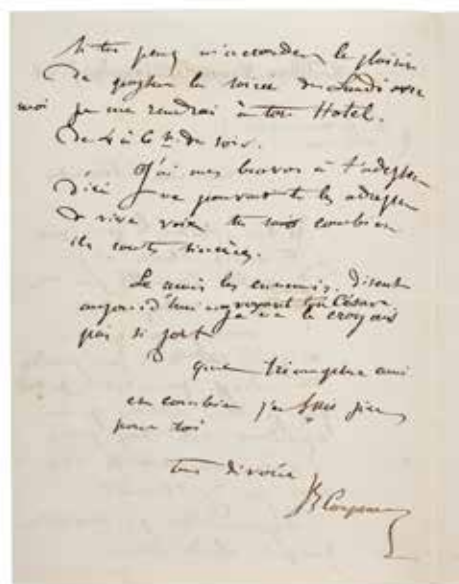 Si tu peux m'accorder le plaisir
de passer la soirée du Lundi avec
moi je me rendrai à ton Hotel.
de 4 à 6 h. du soir.
J'ai mes bravos à t'adresser
d'ici ne pouvant te les adresser
de vive voix tu sais combien
ils sont sincères.
Le amis les ennemis, disent
aujourd'hui en voyant ton César
je ne le croyais
pas si fort
quel triomphe ami
et combien j'en suis fier
pour toi
ton dévoué
JB Carpeaux